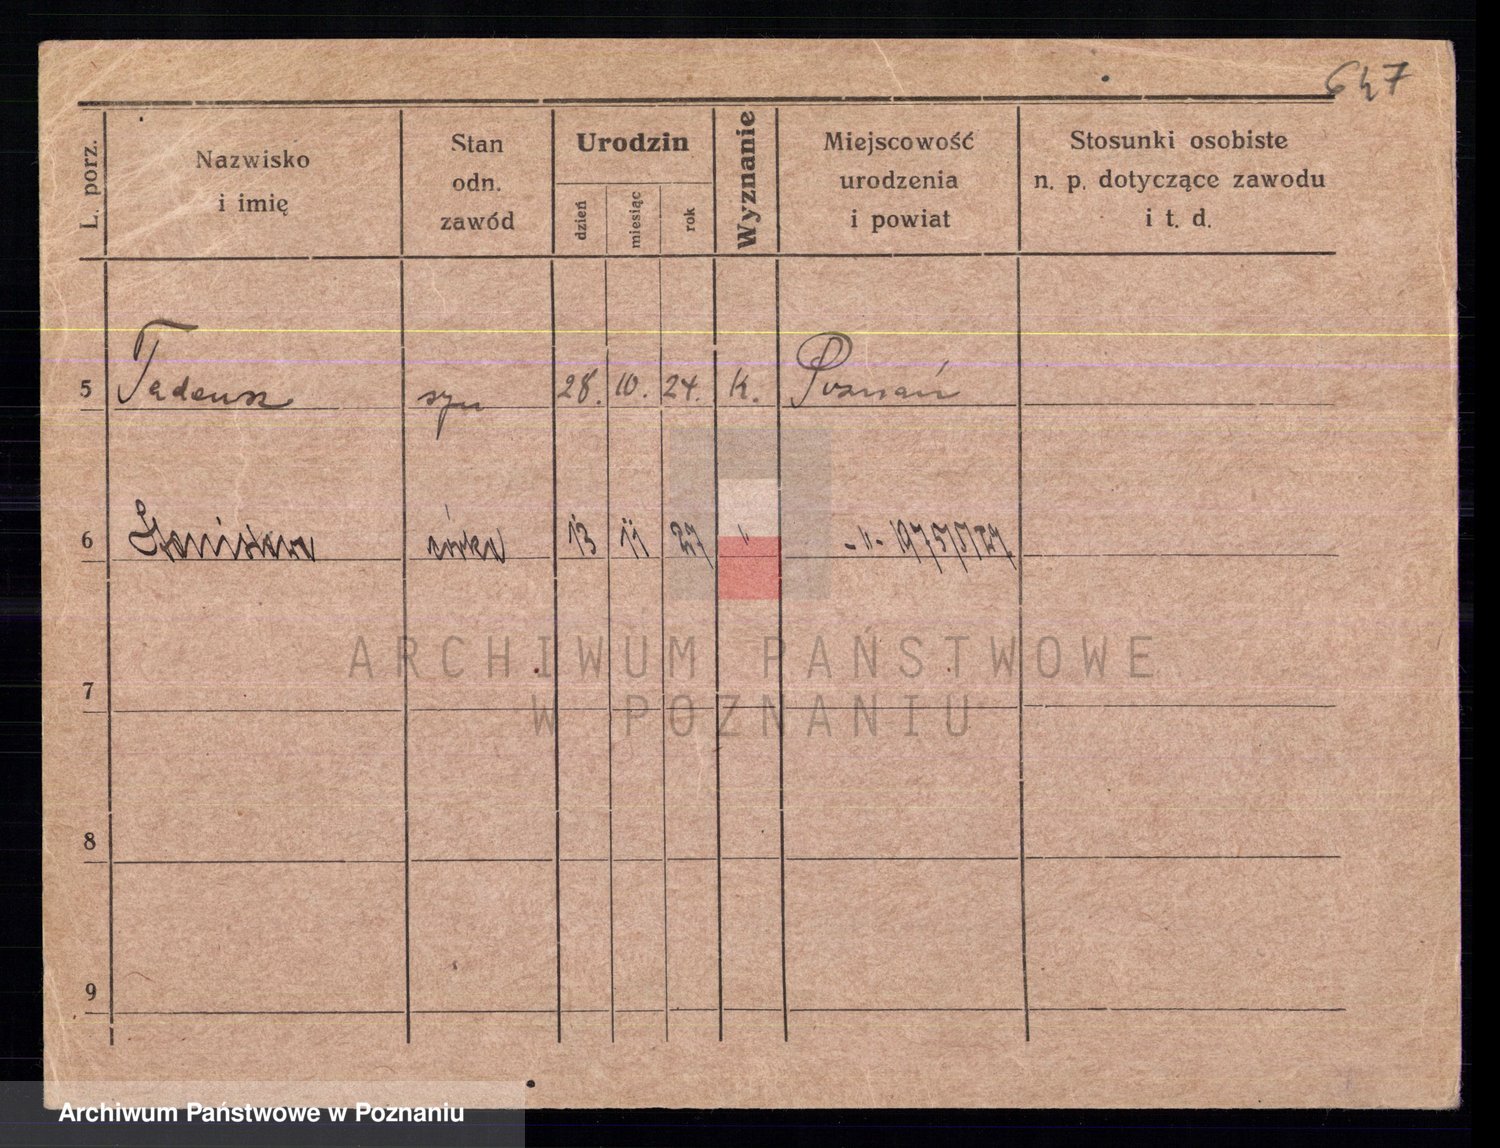 647
L. porz.
Nazwisko
i imię
Stan
odn.
zawód
Urodzin
dzień
miesiąc
rok
Wyznanie
Miejscowość
urodzenia
i powiat
Stosunki osobiste
n. p. dotyczące zawodu
i t. d.
5 Tadeusz syn 28. 10. 24. K. Poznań
6 Stanisława córka 13 11 27 " -"-
7
8
9
ARCHIWUM PAŃSTWOWE
W POZNANIU
Archiwum Państwowe w Poznaniu